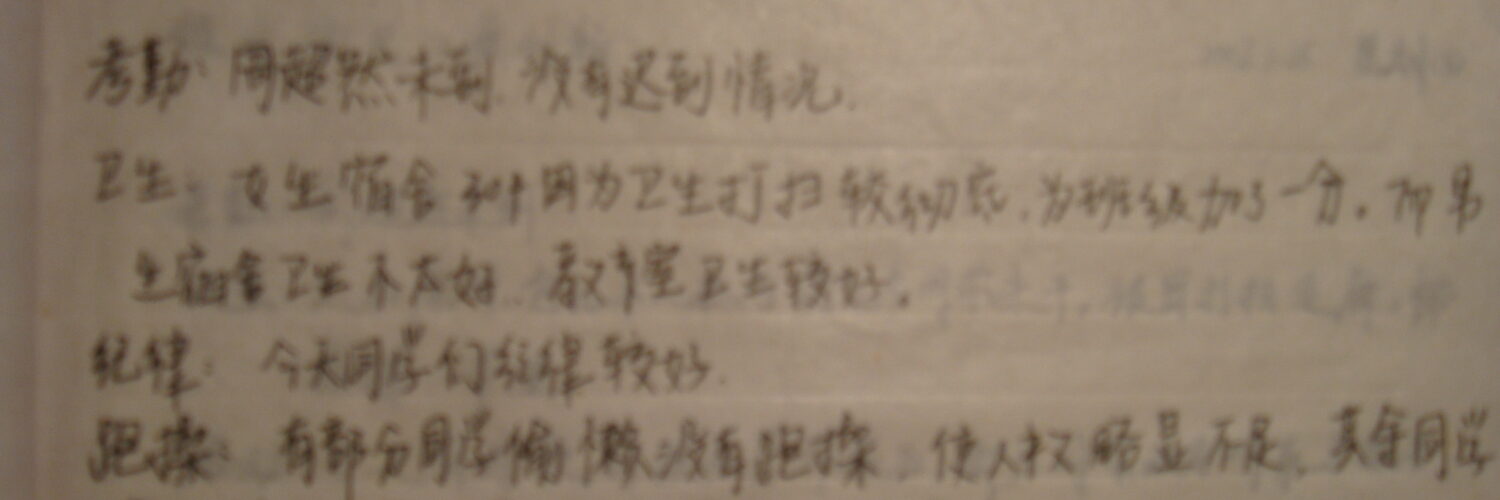 考勤: 周超然未到, 没有迟到情况.
卫生: 女生宿舍304因为卫生打扫较彻底, 为班级加了一分. 而男
生宿舍卫生不太好, 教室卫生较好.
纪律: 今天同学们纪律较好.
跑操: 有部分同学偷懒没有跑操, 使人数略显不足, 其余同学